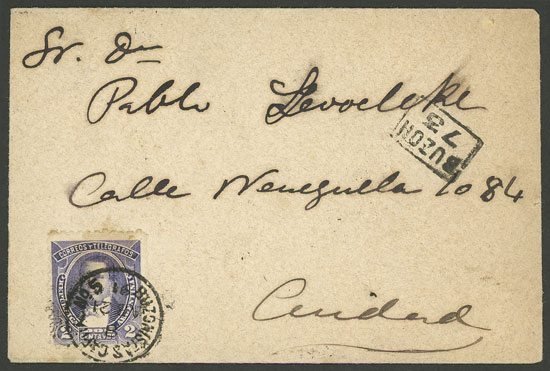 Sr. Dn
Pablo
Calle Venezuela 1084
Ciudad
BUZON
73
CORREOS Y TELEGRAFOS
2 CENTAVOS 2